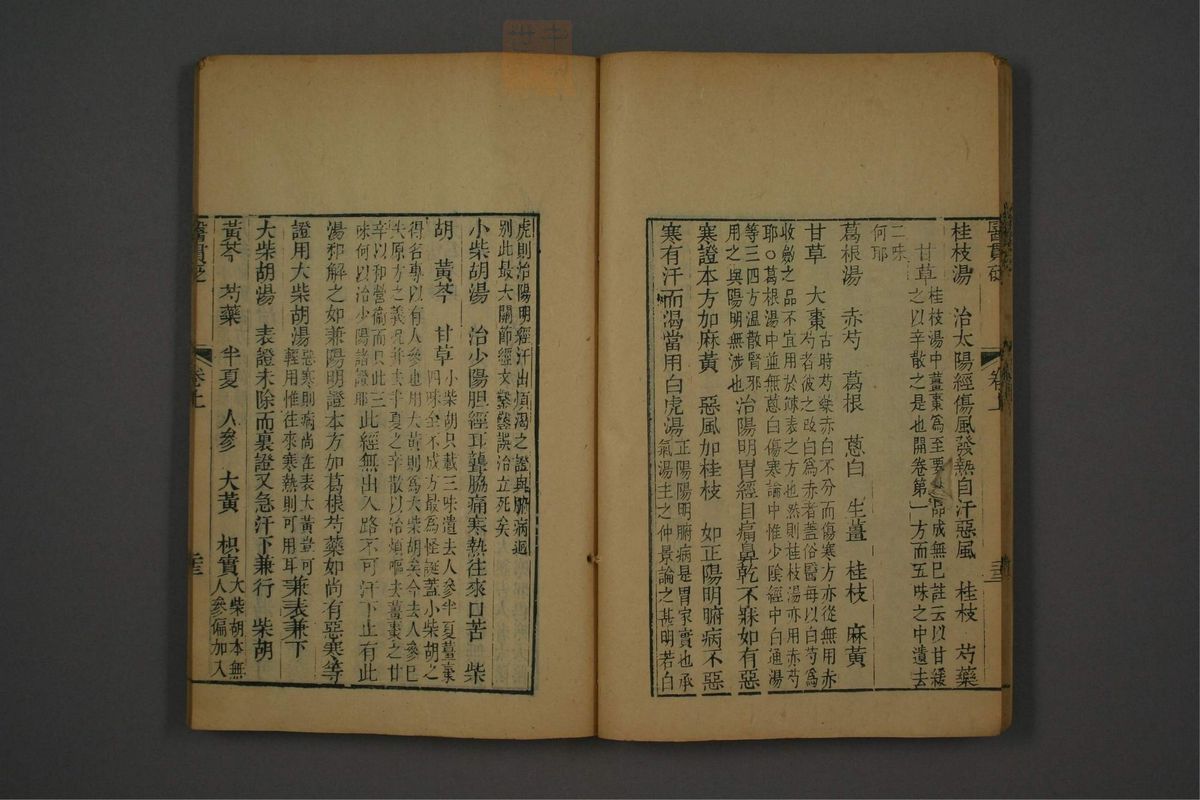 桂枝湯 治太陽經傷風發熱自汗惡風 桂枝 芍藥
甘草
桂枝湯中薑棗爲至要之品成無巳註云以甘緩
之以辛散之是也開卷第一方而五味之中遺去
二味
何耶
葛根湯 赤芍 葛根 蔥白 生薑 桂枝 麻黃
甘草 大棗
古時芍藥赤白不分而傷寒方亦從無用赤
芍者彼之改白爲赤者蓋俗醫每以白芍爲
收斂之品不宜用於疎表之方也然則桂枝湯亦用赤芍
耶○葛根湯中並無蔥白傷寒論中惟少陰經中白通湯
等三四方溫散腎邪
用之與陽明無涉也
治陽明胃經目痛鼻乾不寐如有惡
寒證本方加麻黃 惡風加桂枝 如正陽明腑病不惡
寒有汗而渴當用白虎湯
正陽陽明腑病是胃家實也承
氣湯主之仲景論之甚明若白
虎則治陽明經汗出煩渴之證與腑病迥
別此最大關節經文鑿鑿誤治立死矣
小柴胡湯 治少陽胆經耳聾脇痛寒熱往來口苦 柴
胡 黃芩 甘草
小柴胡只載三味遺去人參半夏薑棗
四味全不成方最爲怪誕蓋小柴胡之
得名專以有人參也用大黃則爲大柴胡矣今去人參已
失原方之義況并去半夏之辛散以治煩嘔去薑棗之甘
辛以和營衞而只此三
味何以治少陽諸證耶
此經無出入路不可汗下止有此
湯和解之如兼陽明證本方加葛根芍藥如尚有惡寒等
證用大柴胡湯
惡寒則病尚在表大黃豈可
輕用惟往來寒熱則可用耳
兼表兼下
大柴胡湯 表證未除而裏證又急汗下兼行 柴胡
黃芩 芍藥 半夏 人參 大黃 枳實
大柴胡本無
人參偏加入
醫貫砭
卷上